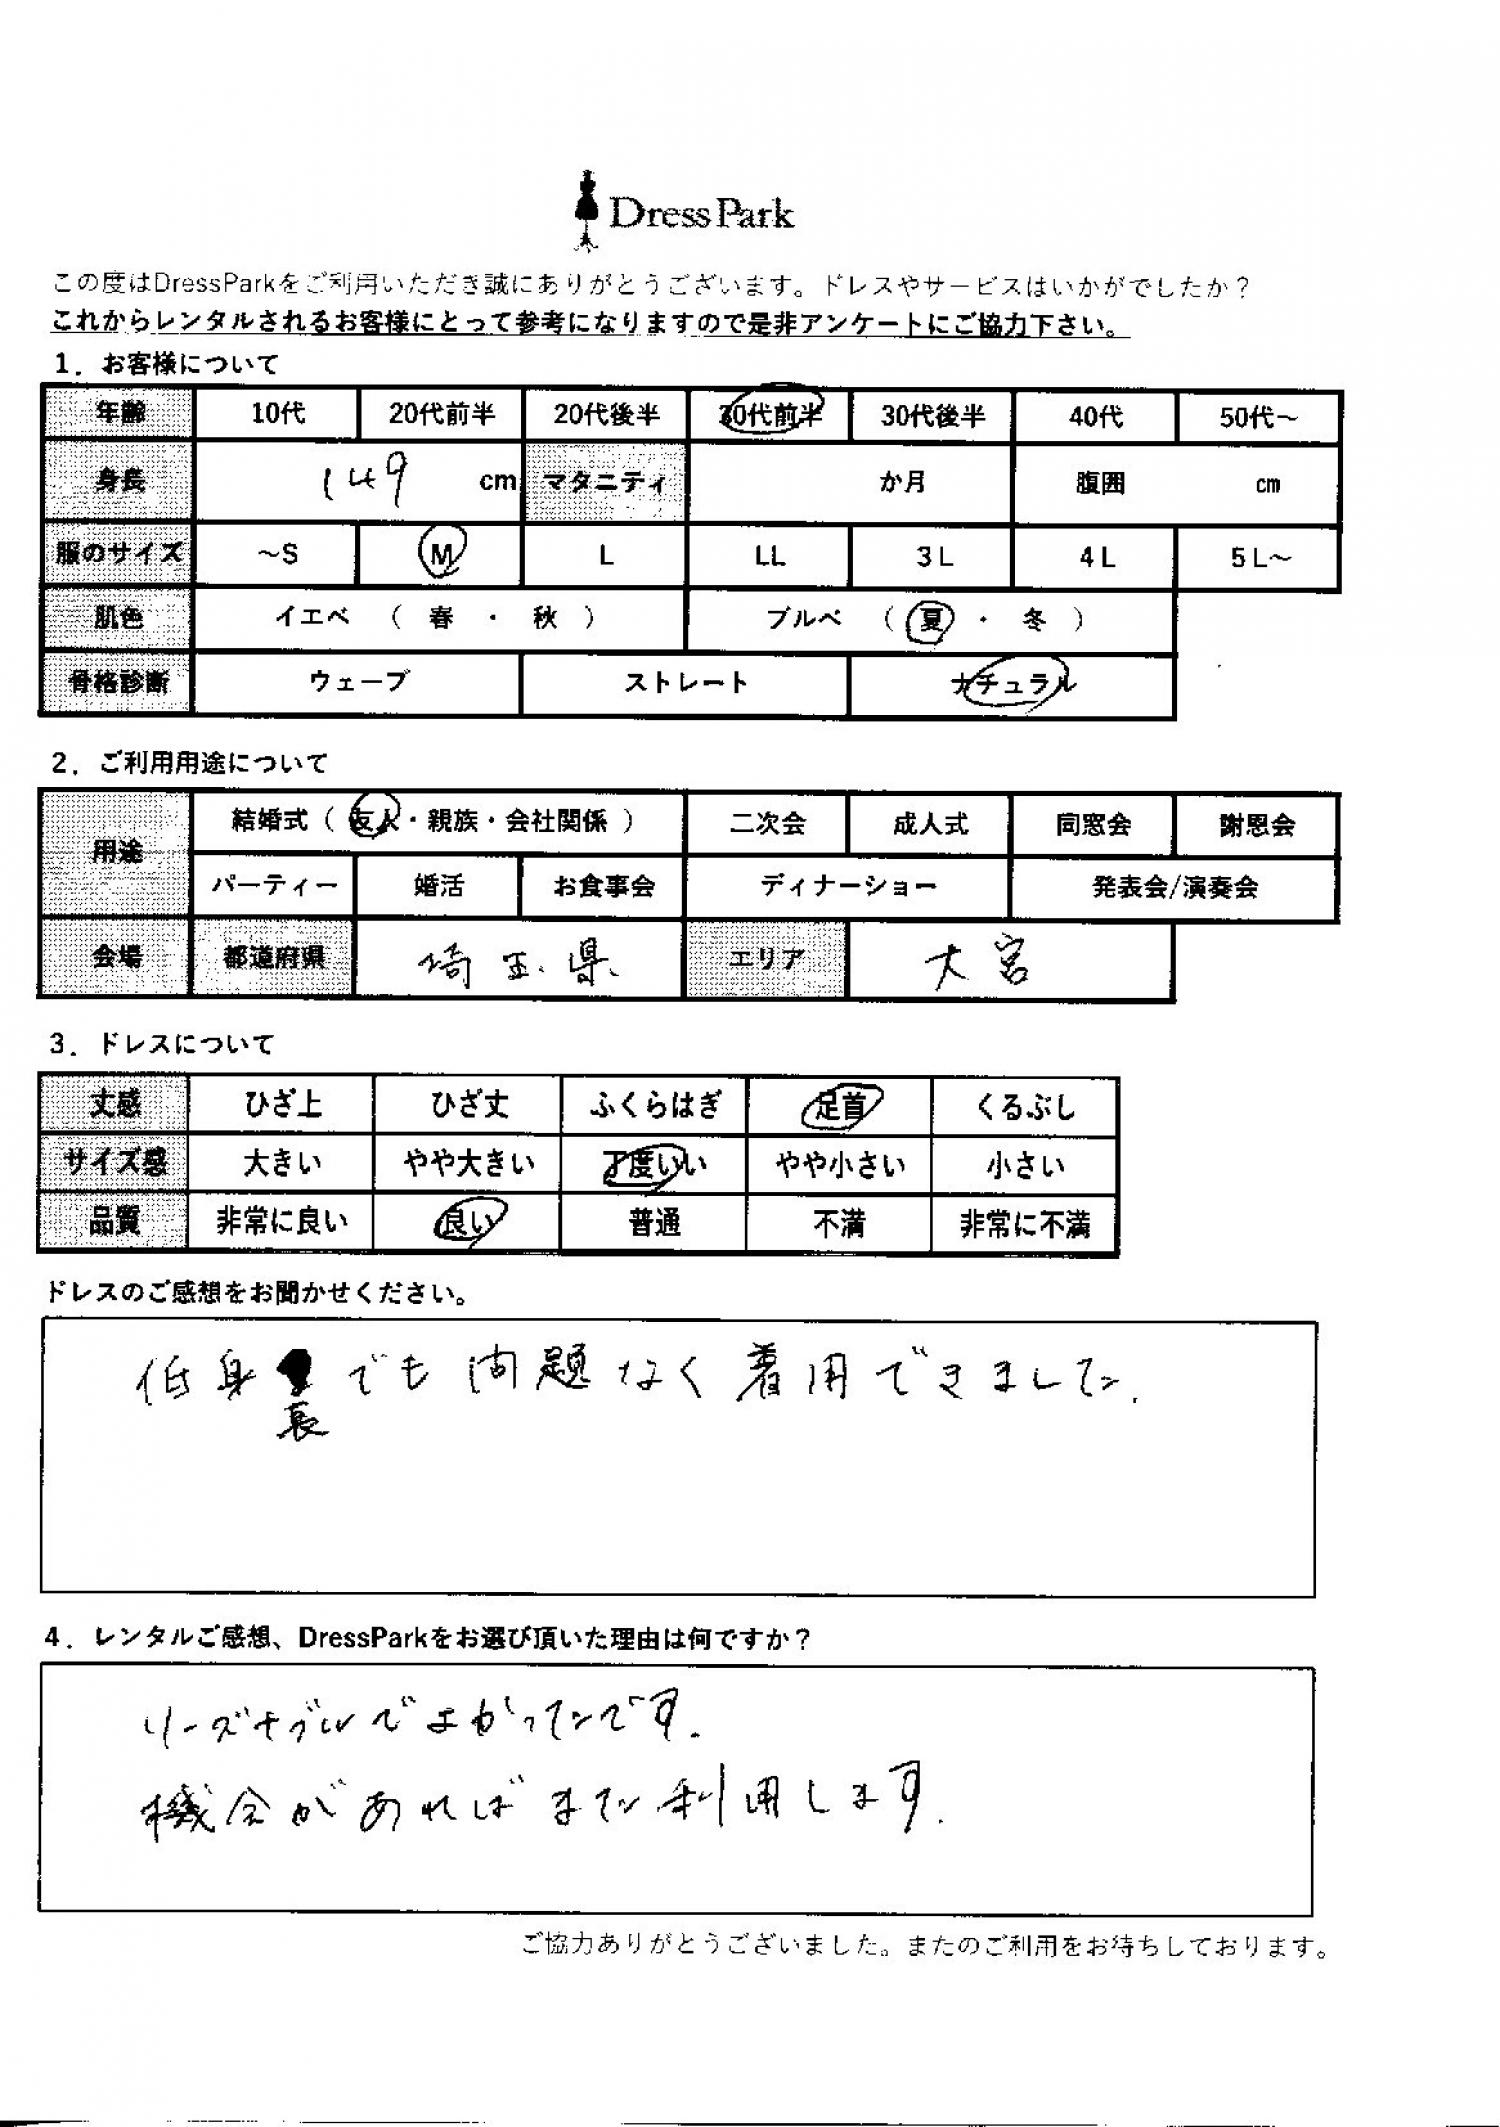 DressPark
この度はDressParkをご利用いただき誠にありがとうございます。ドレスやサービスはいかがでしたか？
これからレンタルされるお客様にとって参考になりますので是非アンケートにご協力下さい。
1．お客様について
年齢 10代 20代前半 20代後半 30代前半 30代後半 40代 50代～
身長 149 cm マタニティ か月 腹囲 cm
服のサイズ ～S M L LL 3L 4L 5L～
肌色 イエベ （ 春 ・ 秋 ） ブルベ （ 夏 ・ 冬 ）
骨格診断 ウェーブ ストレート ナチュラル
2．ご利用用途について
用途 結婚式（ 友人・親族・会社関係 ） 二次会 成人式 同窓会 謝恩会
パーティー 婚活 お食事会 ディナーショー 発表会/演奏会
会場 都道府県 埼玉県 エリア 大宮
3．ドレスについて
丈感 ひざ上 ひざ丈 ふくらはぎ 足首 くるぶし
サイズ感 大きい やや大きい 丁度いい やや小さい 小さい
品質 非常に良い 良い 普通 不満 非常に不満
ドレスのご感想をお聞かせください。
低身長でも問題なく着用できました.
4．レンタルご感想、DressParkをお選び頂いた理由は何ですか？
リーズナブルでよかったです.
機会があればまた利用します.
ご協力ありがとうございました。またのご利用をお待ちしております。